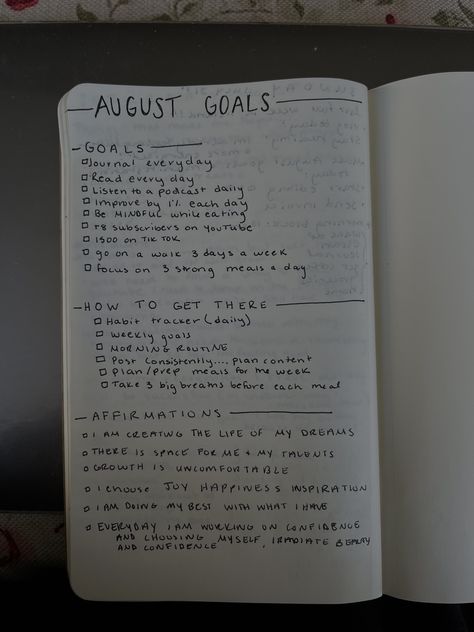 AUGUST GOALS
GOALS
Journal everyday
Read every day
Listen to a podcast daily
Improve by 1% each day
Be MINDFUL while eating
78 subscribers on YouTube
1500 on TIK TOK
go on a walk 3 days a week
focus on 3 strong meals a day
HOW TO GET THERE
Habit tracker (daily)
weekly goals
MORNING ROUTINE
Post consistently.... plan content
plan/prep meals for the week
Take 3 big breaths before each meal
AFFIRMATIONS
I AM CREATING THE LIFE OF MY DREAMS
THERE IS SPACE FOR ME + MY TALENTS
GROWTH IS UNCOMFORTABLE
I choose JOY HAPPINESS INSPIRATION
I AM DOING MY BEST WITH WHAT I HAVE
EVERYDAY I AM WORKING ON CONFIDENCE
AND CHOOSING MYSELF, IRADIATE BEAUTY
AND CONFIDENCE